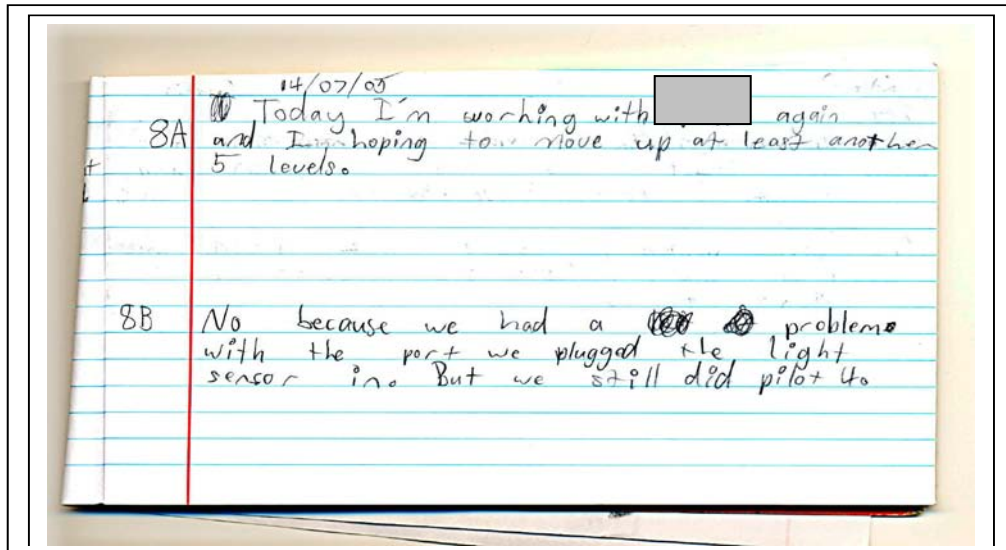 14/07/05
8A Today I'm working with again
and I hoping to move up at least another
5 levels.
8B No because we had a problem
with the port we plugged the light
sensor in. But we still did pilot 4.